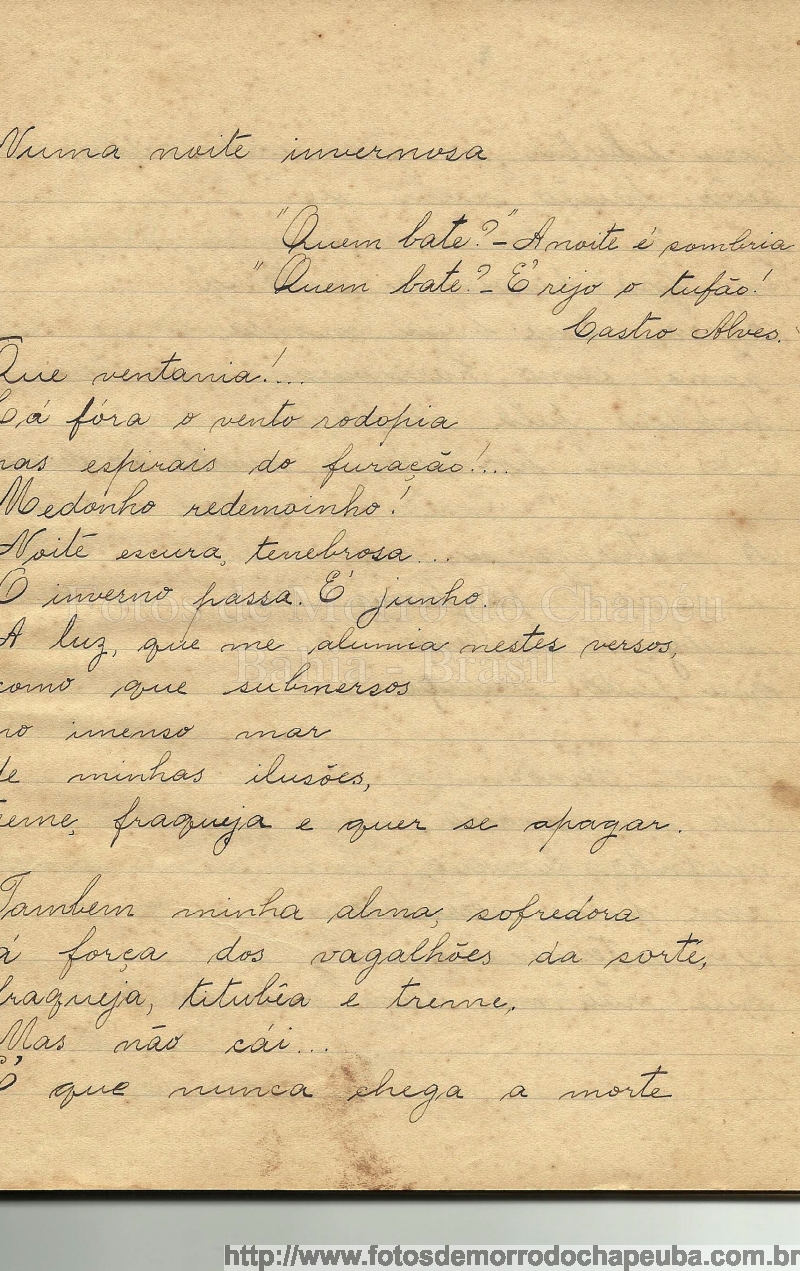 Numa noite invernosa
"Quem bate?" - A noite é sombria
"Quem bate?" - É rijo o tufão!
Castro Alves.
Que ventania!....
Cá fóra o vento rodopia
nas espirais do furacão!....
Medonho redemoinho!
Noite escura, tenebrosa...
O inverno passa. É junho.
Fotos de Morro do Chapéu
A luz, que me alumia nestes versos,
Bahia - Brasil
como que submersos
no imenso mar
de minhas ilusões,
treme, fraqueja e quer se apagar.
Tambem minha alma, sofredora
á força dos vagalhões da sorte,
fraqueja, titubêa e treme.
Mas não cái...
É que nunca chega a morte
http://www.fotosdemorrodochapeuba.com.br